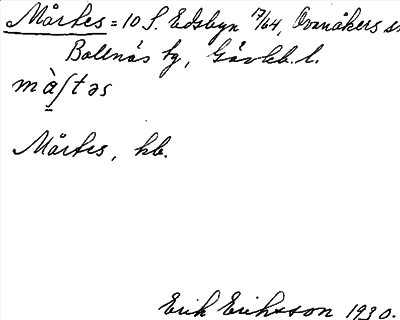 Mårtes = 10 S. Edsbyn 17/64, Ovanåkers sn
Bollnäs tg, Gävleb. l.
mà̱ʃtəs
Mårtes, kb.
Erik Eriksson 1930.